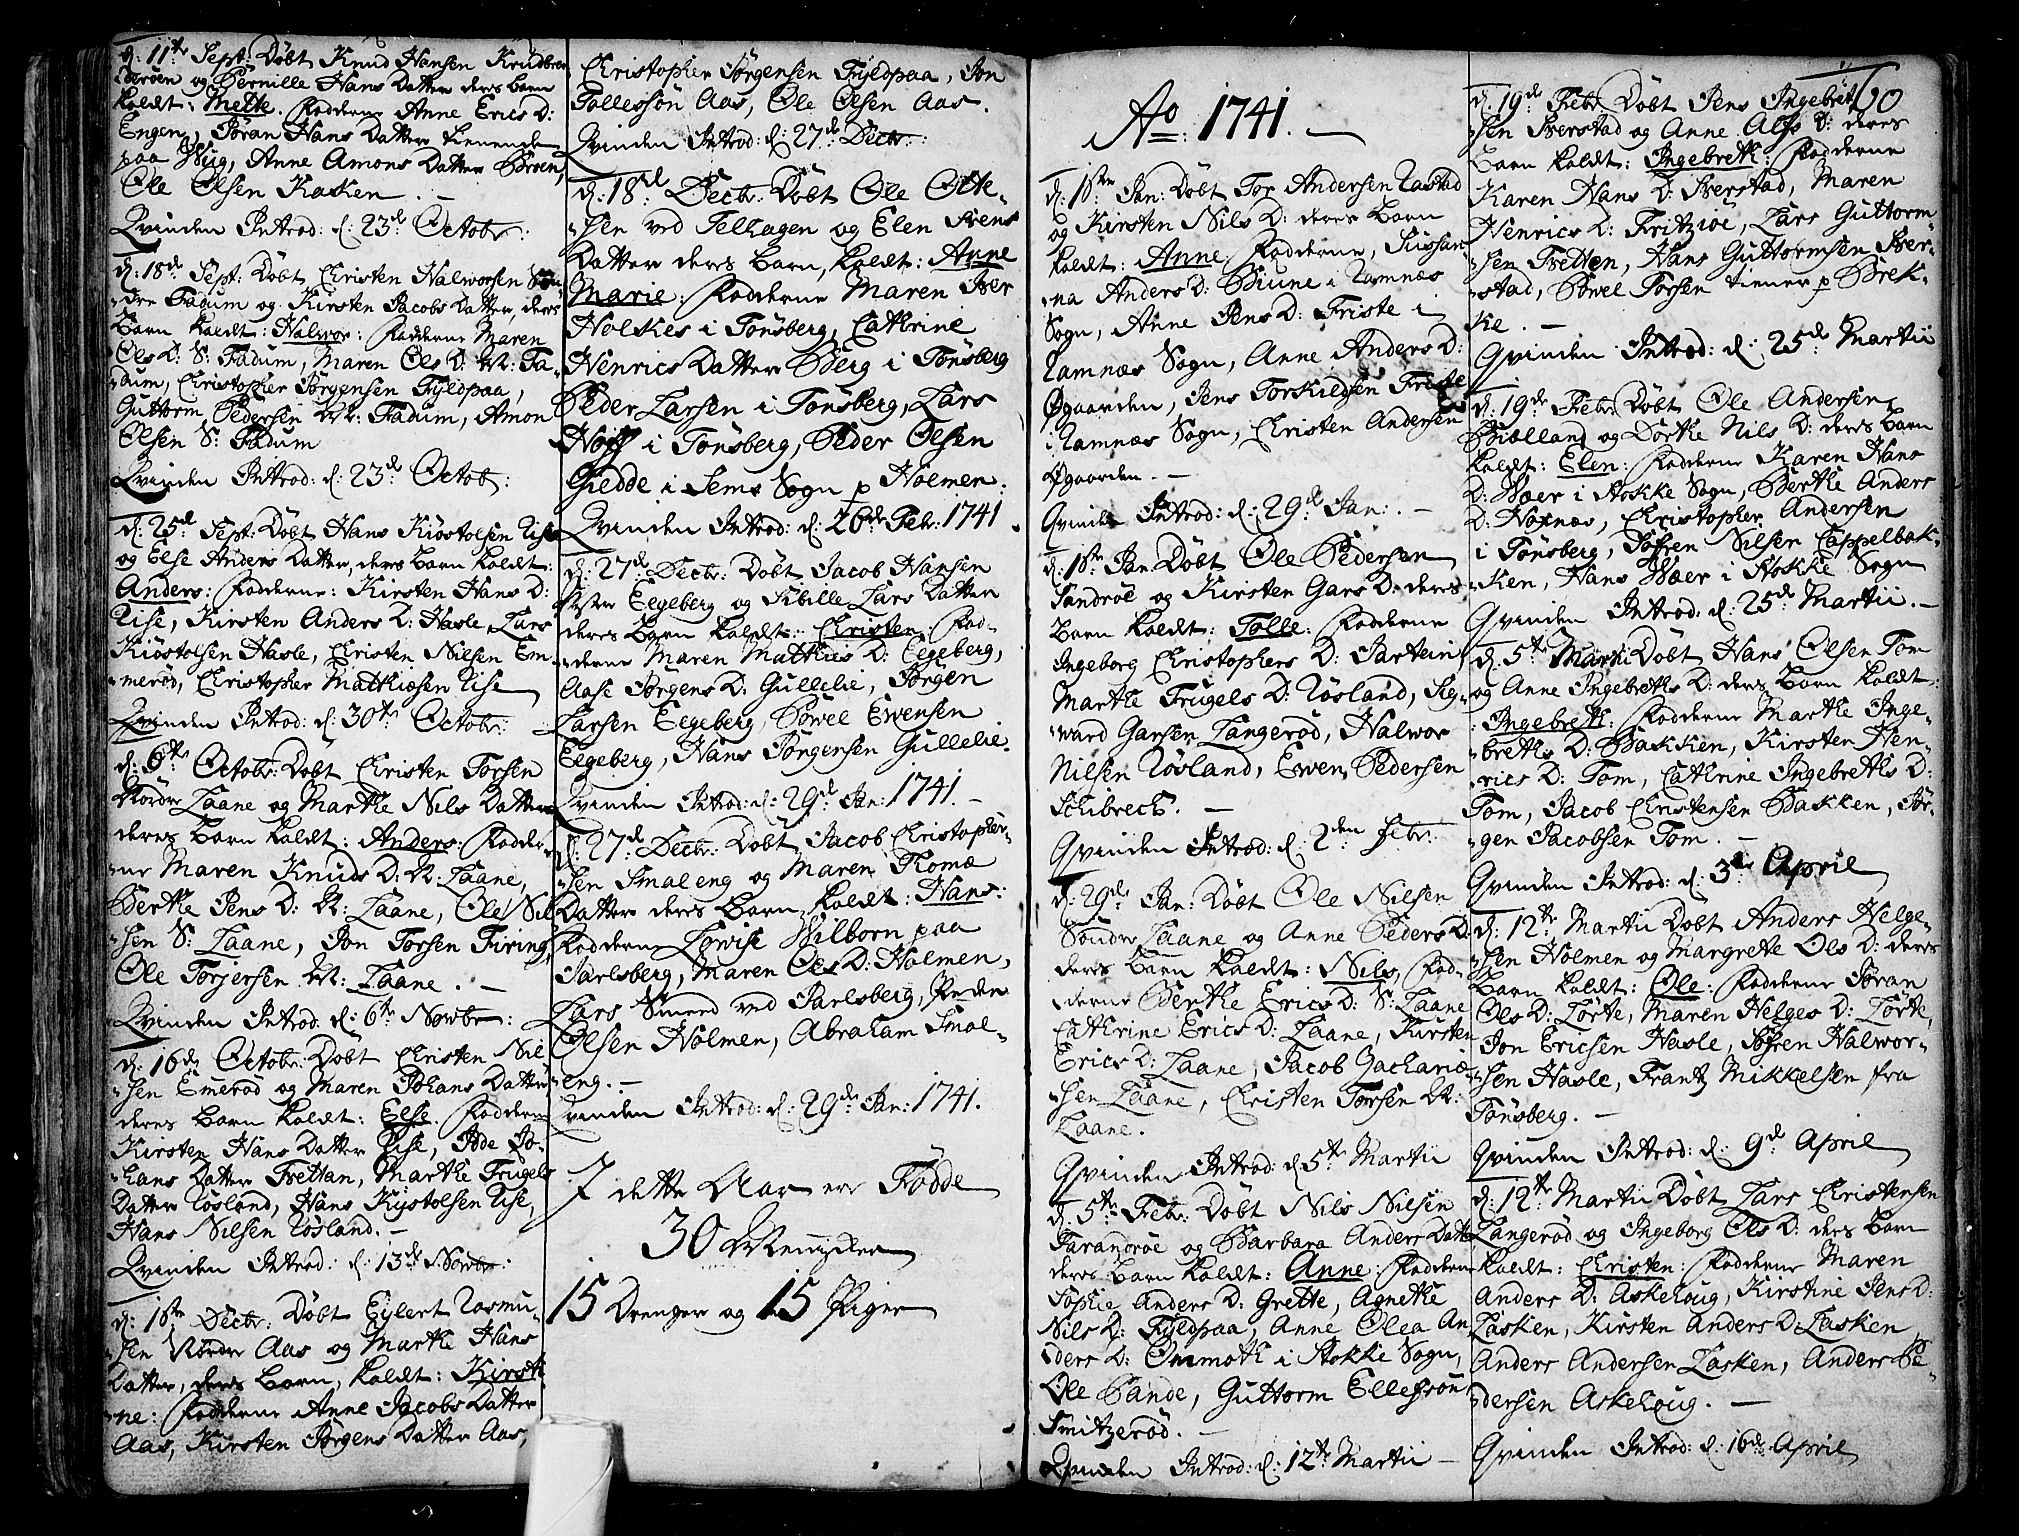 d: 11te Sept: Döbt Knud Hansen Knudbræ-
Pernille Hans Datter deres Barn
kaldt: Mette. Fadderne Anne Erics D:
Engen, Söran Hans Datter tienende
paa Anne Amons Datter
Ole Olsen Kasken. -
Qvinden Introd: d: 23de Octobr:
d: 18de Sept: Döbt Christen Halworsen Sön-
dre Fadum og Kirsten Jacobs Datter, deres
Barn kaldt: Halwor: Fadderne Maren
Ols D: S: Fadum, Maren Ols D: N: Fa-
dum, Christopher Jörgensen Fyldpaa,
Guttorm Pedersen N: Fadum, Amon
Olsen S: Fadum
Qvinden Introd: d: 23de Octob:
d: 25de Sept: Döbt Hans Kiöstolsen Rise
og Else Anders Datter, deres Barn kaldt:
Anders: Fadderne: Kirsten Hans D:
Rise, Kirsten Anders D: Hasle, Lars
Kiöstolsen Hasle, Christen Nilsen Em-
meröd, Christopher Mathiesen Rise
Qvinden Introd: d: 30te Octobr:
d: 6te Octobr: Döbt Christen Torsen
Nordre Laane og Marthe Nils Datter
deres Barn kaldt: Anders: Fadder-
ne Maren Knuds D: N: Laane,
Berthe Jens D: N: Laane, Ole Nil-
sen S: Laane, Jon Torsen Firing,
Ole Torjersen N: Laane. -
Qvinden Introd: d: 6te Nowbr:
d: 16de Octobr: Döbt Christen Nil-
sen Emeröd og Maren Johans Datter
deres Barn kaldt: Else. Fadderne
Kirsten Hans Datter Rise, Jo-
hans Datter Frettan, Marthe Frugels
Datter Rösland, Hans Kystolsen Rise,
Hans Nilsen Rösland. -
Qvinden Introd: d: 13de Nowbr:
d: 1ste Decbr: Döbt Eylert Rasmu-
sen Nordre Aas og Marthe Hans
Datter, deres Barn, kaldt: Kirsti-
ne: Fadderne Anne Jacobs Datter
Aas, Kirsten Jörgens Datter Aas,
Christopher Jörgensen Fyldpaa, Jon
Tollessön Aas, Ole Olsen Aas.
Qvinden Introd: d: 27de Decbr:
d: 18de Decbr: Döbt Ole Otte-
sen ved Telhagen og Elen Svens
Datter deres Barn, kaldt: Anne
Marie: Fadderne Maren Iver
Holskes i Tönsberg, Cathrine
Henrics Datter Berg i Tönsberg
Peder Larsen i Tönsberg, Lars
Hoff i Tönsberg, Peder Olsen
Giedde i Sems Sogn p Holmen:
Qvinden Introd: d: 26de Febr: 1741.
d: 27de Decbr: Döbt Jacob Hansen
Vestre Eegeberg og Sibille Lars Datter
deres Barn kaldt: Christen: Fad-
derne Maren Mathies D: Eegeberg,
Aase Jörgens D: Gullelie, Jörgen
Larsen Eegeberg, Powel Ewensen
Eegeberg, Hans Jörgensen Gullelie.
Qvinden Introd: d: 29de Jan: 1741. -
d: 27de Decbr: Döbt Jacob Christopher-
sen Smaleng og Maren Thomæ
Datter deres Barn kaldt: Hans:
Fadderne Lowise Wilborn paa
Jarlsberg, Maren Ols D: Holmen,
Lars Smed ved Jarlsberg, Peder
Olsen Holmen, Abraham Smal-
eng. -
Qvinden Introd: d: 29de Jan: 1741.
I dette Aar ere Födde
30 Mennisker
15 Drenger og 15 Piger
60
Ao: 1741. -
d: 1ste Jan: Döbt Tor Andersen Rastad
og Kirsten Nils D: deres Barn
kaldt: Anne. Fadderne, Sussan-
na Anders D: Biune i Ramnæs
Sogn, Anne Jens D: Friste i
Ramnæs Sogn, Anne Anders D:
Ögaarden, Jens Torkildsen Friste
i Ramnæs Sogn, Christen Andersen
Ögaarden. -
Qvinden Introd: d: 29de Jan: -
d: 1ste Jan: Döbt Ole Pedersen
Sandröe og Kirsten Gars D: deres
Barn kaldt: Tolle: Fadderne
Ingeborg Christophers D: Jartein,
Marthe Frugels D: Rösland, Sig-
ward Garsen Langeröd, Halwor
Nilsen Rösland, Ewen Pedersen
Schibrech. -
Qvinden Introd: d: 2den Febr:
d: 29de Jan: Döbt Ole Nilsen
Söndre Laane og Anne Peders D:
deres Barn kaldt: Nils, Fad-
derne Berthe Erics D: S: Laane
Cathrine Erics D: Laane, Kirsten
Erics D: Laane, Jacob Zachariæ-
sen Laane, Christen Torsen N:
Laane.
Qvinden Introd: d: 5te Martii
d: 5te Febr: Döbt Nils Nilsen
Farandröe og Barbara Anders Datter
deres Barn kaldt: Anne: Fadderne
Sophie Anders D: Grette, Agnethe
Nils D: Fyldpaa, Anne Olea An-
ders D: Ommoth i Stokke Sogn,
Ole Sande, Guttorm Ellefsön
Smitzeröd. -
Qvinden Introd: d: 12te Martii -
d: 19de Febr: Döbt Jens Ingebret-
sen Sverstad og Anne Alfs D: deres
Barn kaldt: Ingebreth: Fadderne
Karen Hans D: Sverstad, Maren
Henrics D: Fritzöe, Lars Guttorm-
sen Fretten, Hans Guttormsen Sver-
stad, Powel Torsen tiener p Brek-
ke. -
Qvinden Introd: d: 25de Martii
d: 19de Febr: Döbt Ole Andersen
Biælland og Dorthe Nils D: deres Barn
kaldt: Elen: Fadderne Karen Hans
D: Wær i Stokke Sogn, Berthe Anders
D: Hoxnæs, Christopher Andersen
i Tönsberg, Söfren Nilsen Cappelbak-
ken, Hans Wær i Stokke Sogn
Qvinden Introd: d: 25de Martii. -
d: 5te Martii Döbt Hans Olsen Tom
og Anne Ingebreths D: deres Barn kaldt:
Ingebreth: Fadderne Marthe Inge-
breths D: Bakken, Kirsten Hen-
rics D: Tom, Cathrine Ingebreths D:
Tom, Jacob Christensen Bakken, Jör-
gen Jacobsen Tom. -
Qvinden Introd: d: 3de April
d: 12te Martii Döbt Anders Helge-
sen Holmen og Margrethe Ols D: deres
Barn kaldt: Ole: Fadderne Söran
Ols D: Lörte, Maren Helges D: Lörte,
Jon Ericsen Hasle, Söfren Halwor-
sen Hasle, Frantz Mikkelsen fra
Tönsberg. -
Qvinden Introd: d: 9de April
d: 12te Martii Döbt Lars Christensen
Langeröd og Ingeborg Ols D: deres Barn
kaldt: Christen: Fadderne Maren
Anders D: Askehoug, Kirstine Jens D:
Lasken, Kirsten Anders D: Lasken
Anders Andersen Lasken, Anders Pe-
dersen Askehoug. -
Qvinden Introd: d: 16de April